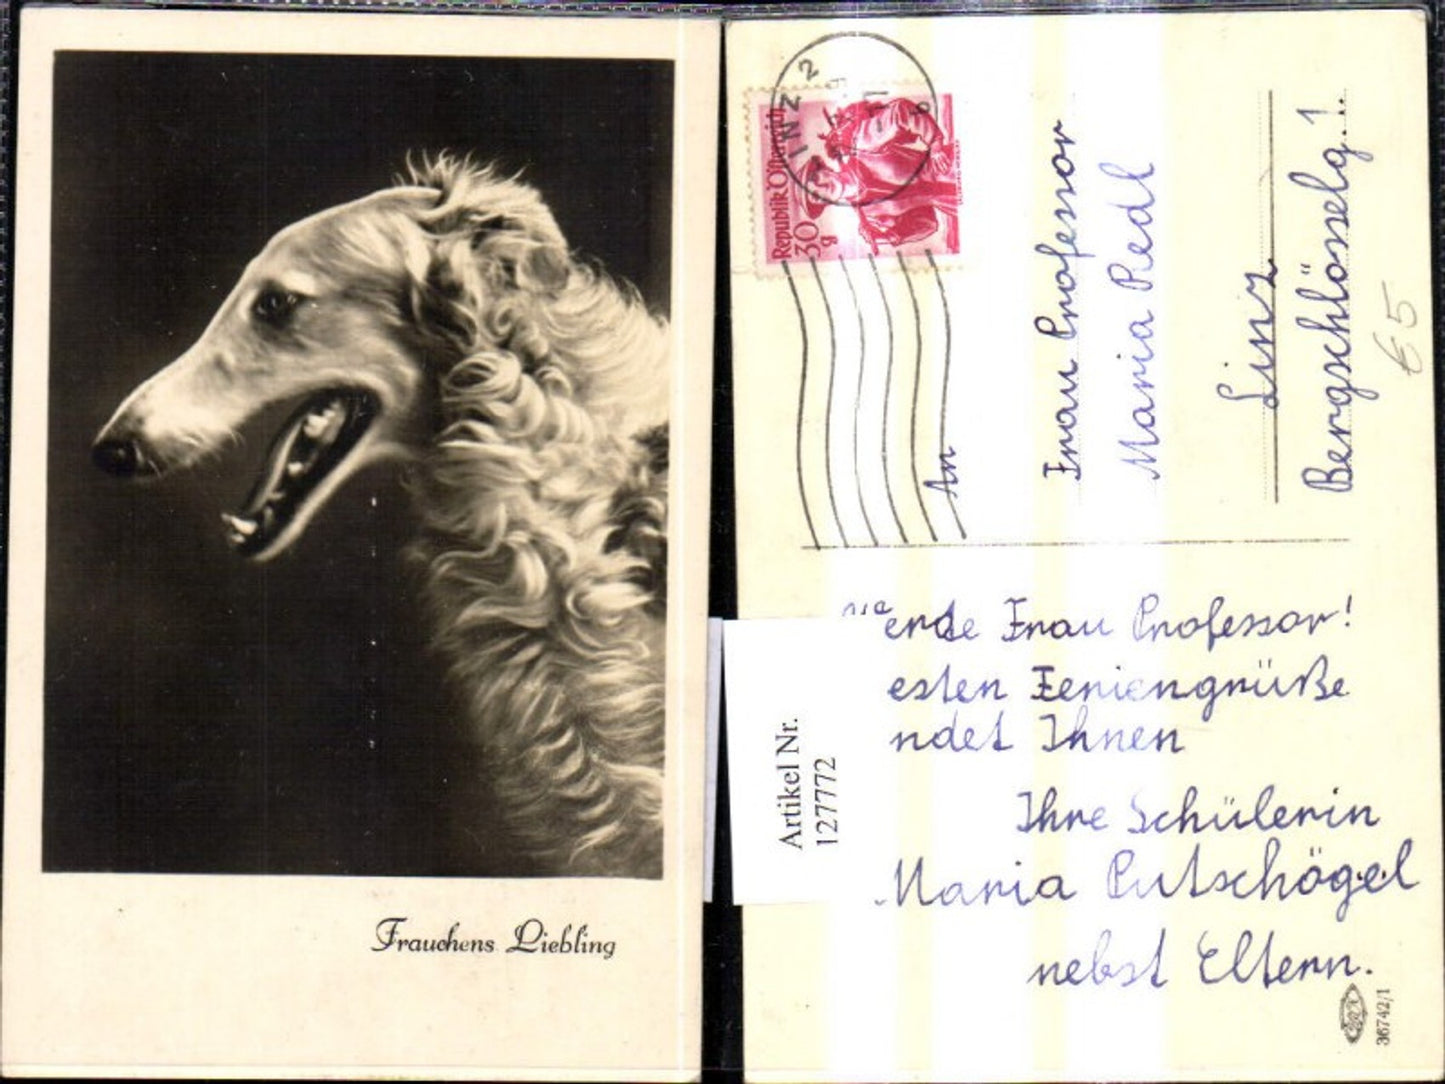 Frauchens Liebling
LINZ 2
Republik Österreich
30
g
An
Frau Professor
Maria Riedl
Linz
Bergschlösselg. 1.
€5
esten Feriengrüße
ndet Ihnen
Ihre Schülerin
Maria Putschögel
nebst Eltern.
Frau Professor!
Artikel Nr.
127772
36742/1